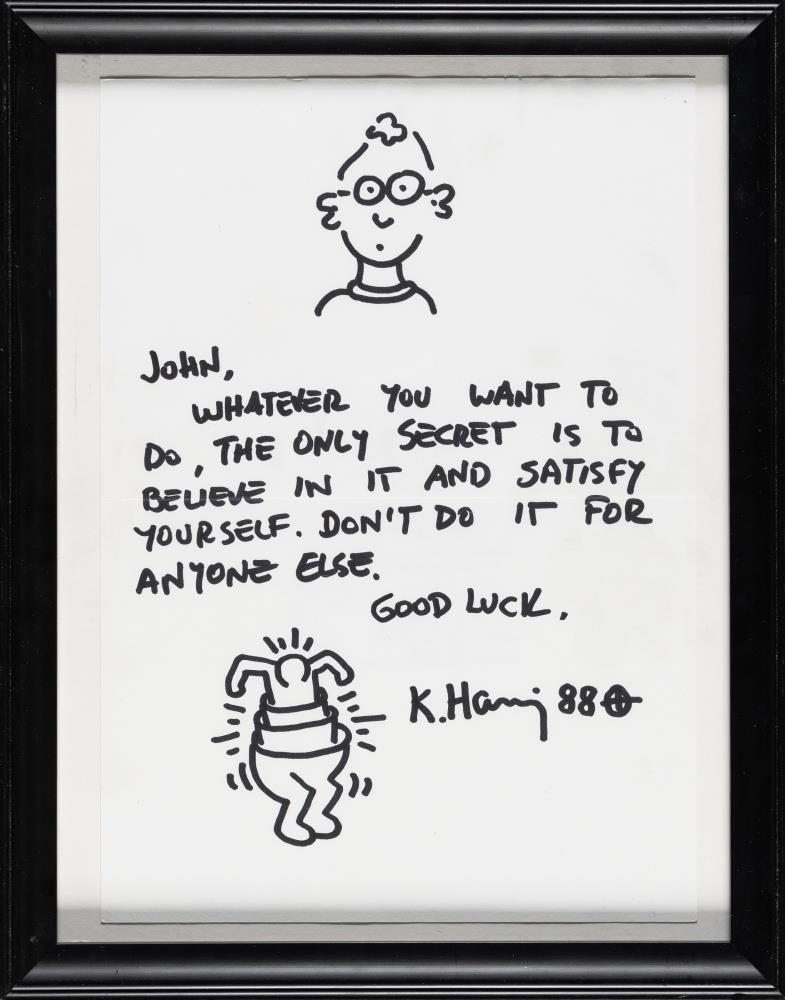 JOHN,
WHATEVER YOU WANT TO
DO, THE ONLY SECRET IS TO
BELIEVE IN IT AND SATISFY
YOURSELF. DON'T DO IT FOR
ANYONE ELSE.
GOOD LUCK,
K. Haring 88